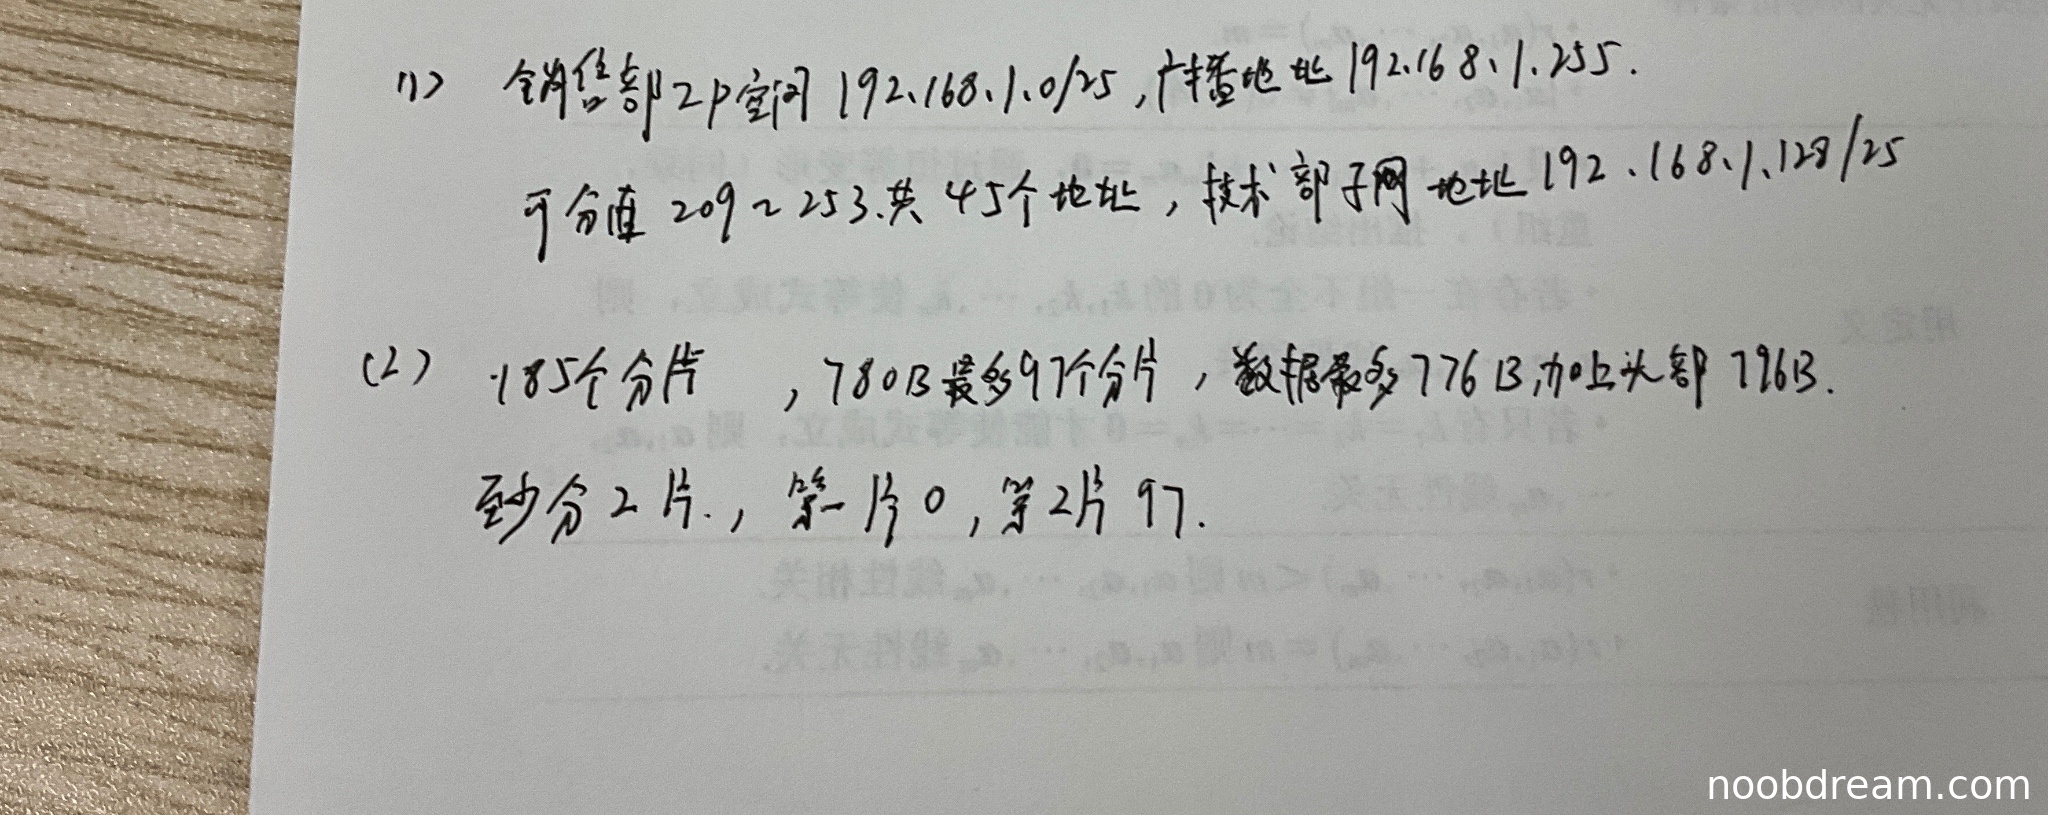 (1) 销售部IP空间 192.168.1.0/25,广播地址 192.168.1.255.
可分值 209~253.共 45个地址,技术部子网地址 192.168.1.128/25
(2) 185个分片 ,780B最多97个分片,数据最多776B,加上头部 796B.
至少分2片.,第一片0,第2片 97.
noobdream.com